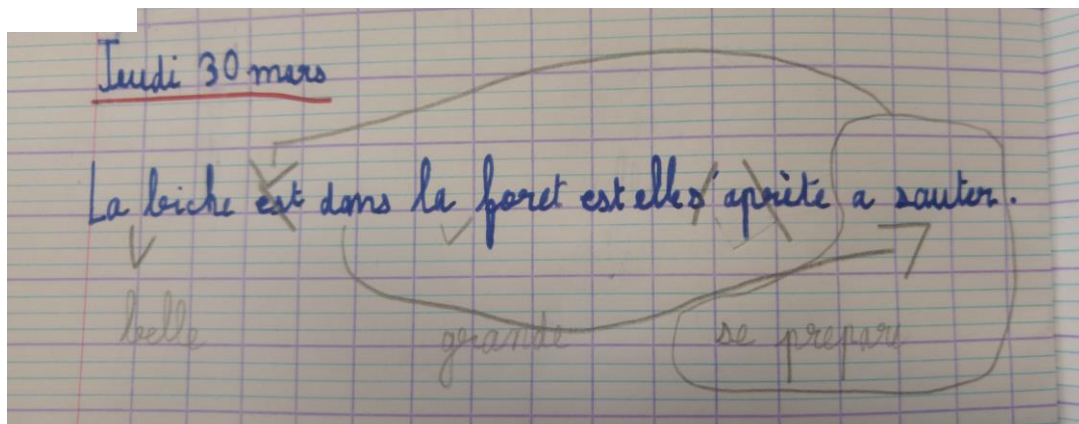 Jeudi 30 mars
La biche est dans la foret est elle s'aprète a sauter.
belle grande se prepare